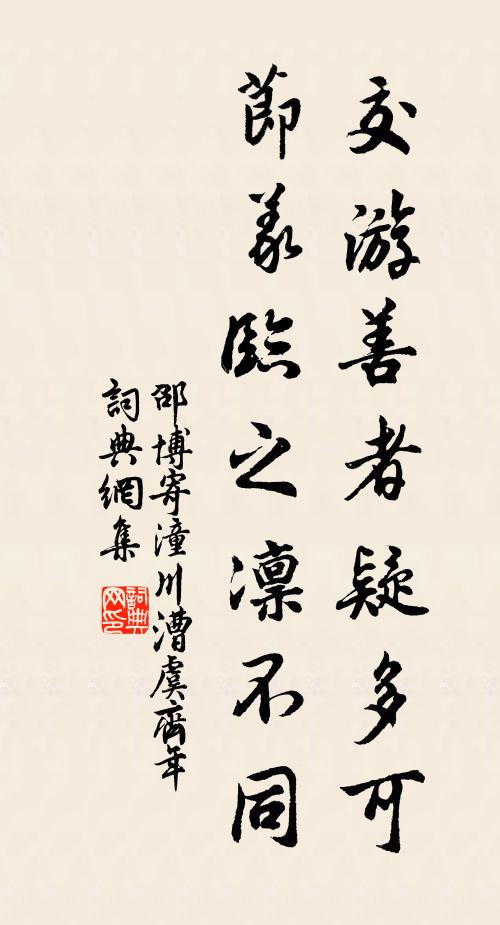 交游善者疑多可
節義臨之凛不同
邵博寄潼川漕虞齊年
詞典網集
詞典网印